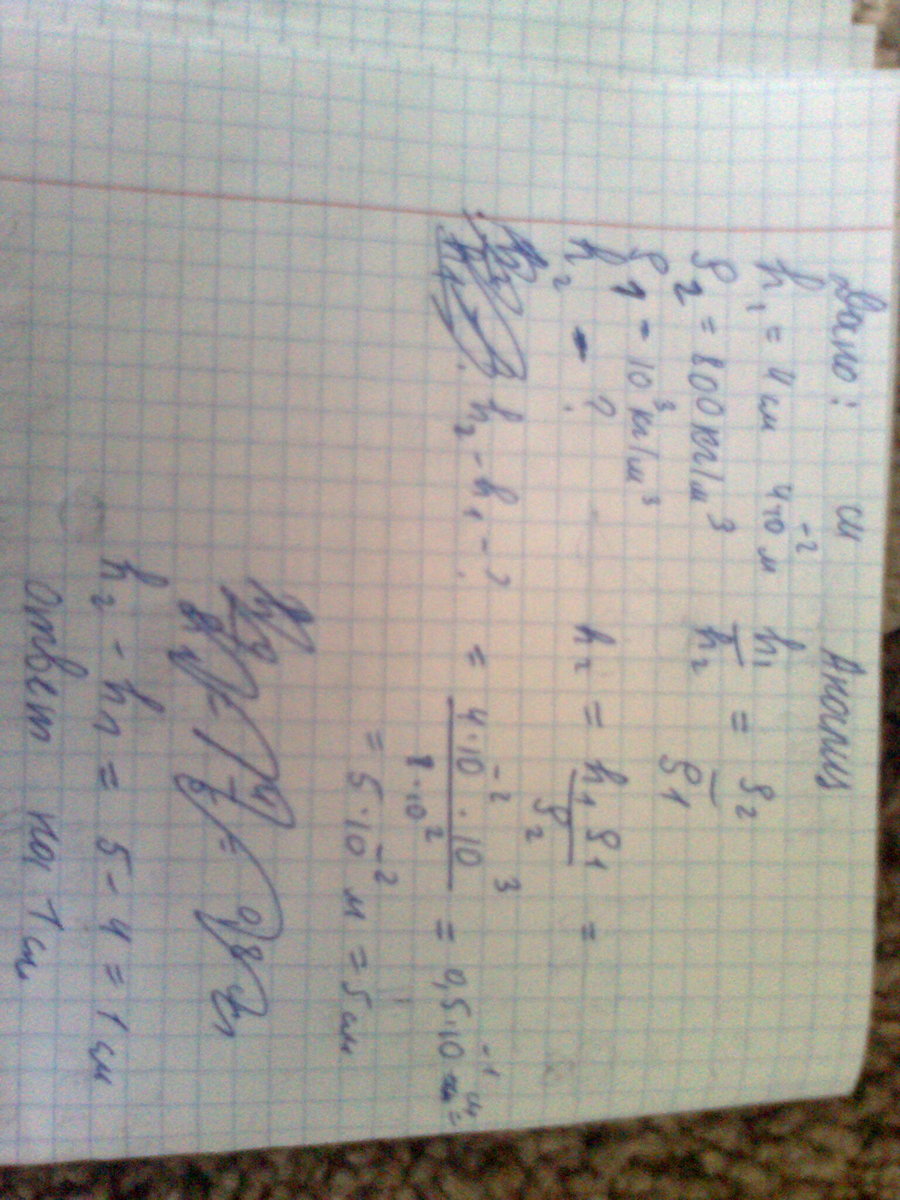 Дано: си Анализ
h₁ = 4 см 4·10⁻² м h₁/h₂ = ρ₂/ρ₁
ρ₂ = 800 кг/м³
ρ₁ - 10³ кг/м³
h₂ - ? h₂ = h₁ρ₁/ρ₂ =
h₂ - h₁ - ? = 4·10⁻²·10³/8·10² = 0,5·10⁻¹ м =
= 5·10⁻² м = 5 см
h₂ - h₁ = 5 - 4 = 1 см
Ответ на 1 см